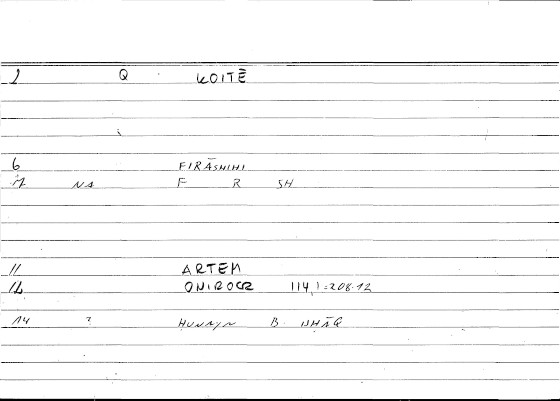 1 Q KOITĒ
6 FIRĀSHIHI
7 NA F R SH
11 ARTEM
12 ONIROCR 114,1=208.12
14 ? HUNAYN B ISHĀQ